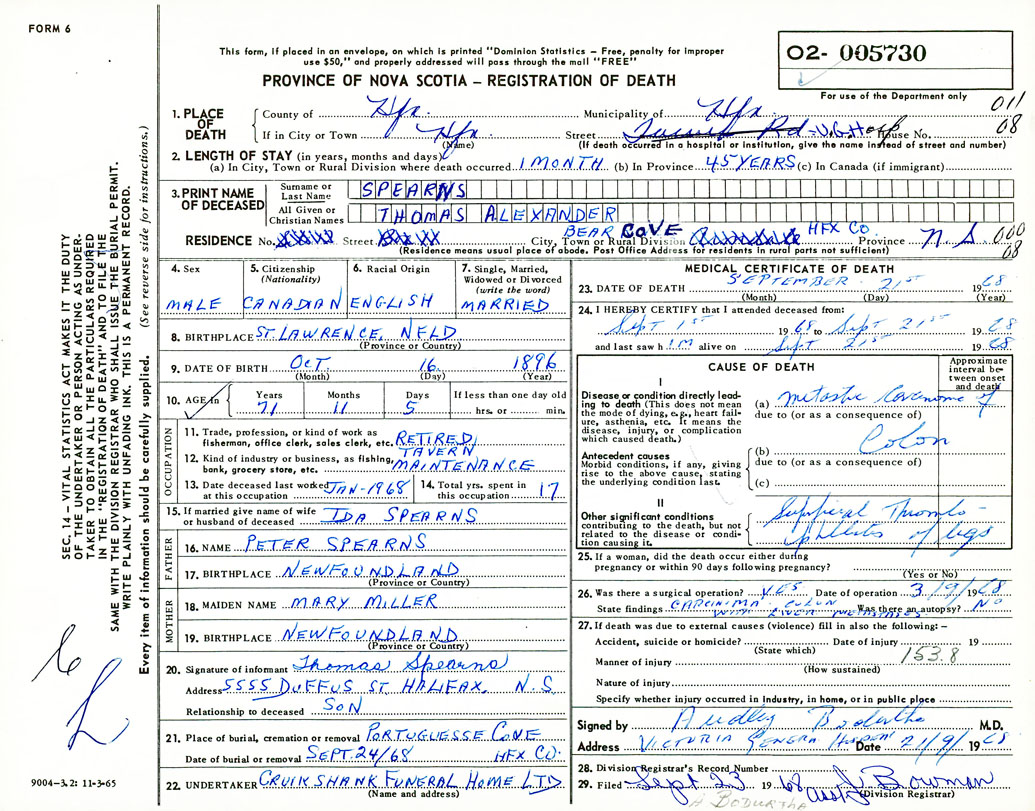 FORM 6
This form, if placed in an envelope, on which is printed "Dominion Statistics – Free, penalty for improper
use $50," and properly addressed will pass through the mail "FREE"
O2- 005730
PROVINCE OF NOVA SCOTIA – REGISTRATION OF DEATH
For use of the Department only
011
08
1. PLACE OF DEATH County of Hfx. Municipality of Hfx.
If in City or Town Hfx Street V.G. Hosp House No.
(Name) (If death occurred in a hospital or institution, give the name instead of street and number)
2. LENGTH OF STAY (in years, months and days)
(a) In City, Town or Rural Division where death occurred 1 MONTH (b) In Province 45 YEARS (c) In Canada (if immigrant)
3. PRINT NAME OF DECEASED Surname or Last Name SPEARNS
All Given or Christian Names THOMAS ALEXANDER
RESIDENCE No. Street BEAR COVE City, Town or Rural Division HFX CO. Province N.S 000
08
(Residence means usual place of abode. Post Office Address for residents in rural parts not sufficient)
SEC. 14 – VITAL STATISTICS ACT MAKES IT THE DUTY
OF THE UNDERTAKER OR PERSON ACTING AS UNDER-
TAKER TO OBTAIN ALL THE PARTICULARS REQUIRED
IN THE "REGISTRATION OF DEATH" AND TO FILE THE
SAME WITH THE DIVISION REGISTRAR WHO SHALL ISSUE THE BURIAL PERMIT.
WRITE PLAINLY WITH UNFADING INK. THIS IS A PERMANENT RECORD.
Every item of information should be carefully supplied. (See reverse side for instructions.)
4. Sex MALE
5. Citizenship (Nationality) CANADIAN
6. Racial Origin ENGLISH
7. Single, Married, Widowed or Divorced (write the word) MARRIED
8. BIRTHPLACE ST. LAWRENCE, NFLD
(Province or Country)
9. DATE OF BIRTH OCT. 16 1896
(Month) (Day) (Year)
10. AGE in Years 71 Months 11 Days 5 If less than one day old hrs. or min.
OCCUPATION
11. Trade, profession, or kind of work as
fisherman, office clerk, sales clerk, etc. RETIRED
12. Kind of industry or business, as fishing, TAVERN
bank, grocery store, etc. MAINTENANCE
13. Date deceased last worked at this occupation JAN-1968 14. Total yrs. spent in this occupation 17
15. If married give name of wife or husband of deceased IDA SPEARNS
FATHER
16. NAME PETER SPEARNS
17. BIRTHPLACE NEWFOUNDLAND
(Province or Country)
MOTHER
18. MAIDEN NAME MARY MILLER
19. BIRTHPLACE NEWFOUNDLAND
(Province or Country)
20. Signature of informant Thomas Spearns
Address 5555 DUFFUS ST HALIFAX, N.S
Relationship to deceased SON
21. Place of burial, cremation or removal PORTUGUESSE COVE
Date of burial or removal SEPT. 24/68 HFX CO.
22. UNDERTAKER CRUIKSHANK FUNERAL HOME LTD
(Name and address)
9004–3.2: 11-3-65
MEDICAL CERTIFICATE OF DEATH
23. DATE OF DEATH SEPTEMBER 21st 1968
(Month) (Day) (Year)
24. I HEREBY CERTIFY that I attended deceased from:
Sept 1st 1968 to Sept 21st 1968
and last saw h IM alive on Sept 21st 1968
CAUSE OF DEATH
Approximate interval between onset and death
I
Disease or condition directly lead-
ing to death (This does not mean
the mode of dying, e.g., heart fail-
ure, asthenia, etc. It means the
disease, injury, or complication
which caused death.)
(a) metastic Carcinoma of
due to (or as a consequence of)
Colon
Antecedent causes
Morbid conditions, if any, giving
rise to the above cause, stating
the underlying condition last.
(b)
due to (or as a consequence of)
(c)
II
Other significant conditions
contributing to the death, but not
related to the disease or condi-
tion causing it.
Thrombo-
phlebitis of legs
25. If a woman, did the death occur either during
pregnancy or within 90 days following pregnancy?
(Yes or No)
26. Was there a surgical operation? YES Date of operation 3/9/1968
State findings CARCINIMA COLON WITH LIVER METASTASES Was there an autopsy? NO
27. If death was due to external causes (violence) fill in also the following:–
Accident, suicide or homicide? Date of injury 19
(State which) 153.8
Manner of injury
(How sustained)
Nature of injury
Specify whether injury occurred in industry, in home, or in public place
Signed by Audley Bodurtha M.D.
Address VICTORIA GENERAL Date 21/9/ 1968
28. Division Registrar's Record Number
29. Filed Sept 23 1968 asst J Bowman
(Division Registrar)
A BODURTHA